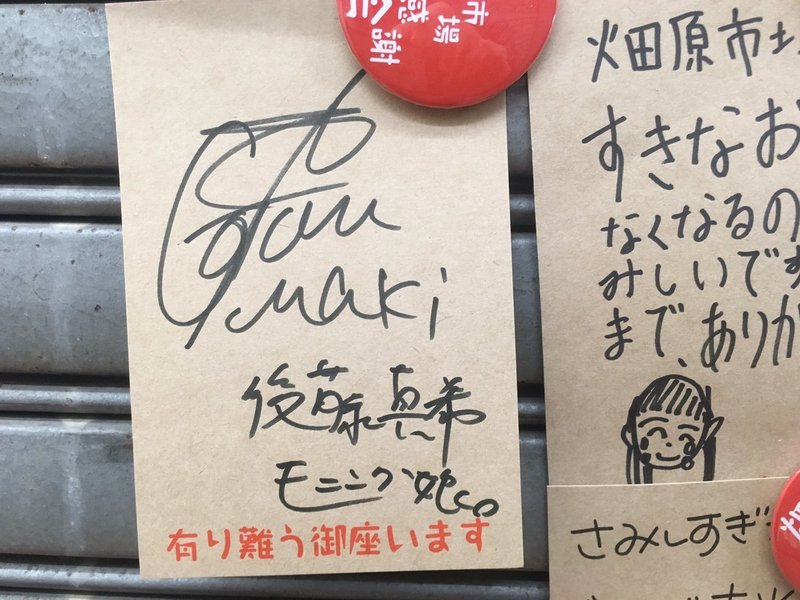 市場
感謝
Goto
Maki
後藤真希
モーニング娘。
有り難う御座います
畑田原市
すきなお
なくなるの
みしいです
まで、ありが
さみしすぎ